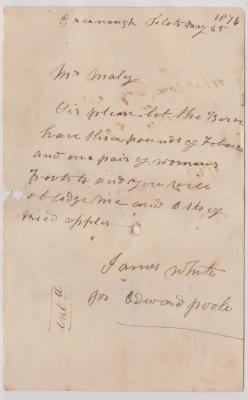 1876
Greenough Flats May 25
Mr Maley
Sir please let the Barer
have three pounds of Tobaco
and one pair of womens
Bootts and you will
obledge me and 6 lbs of
dried apples
James White
for Edward poole